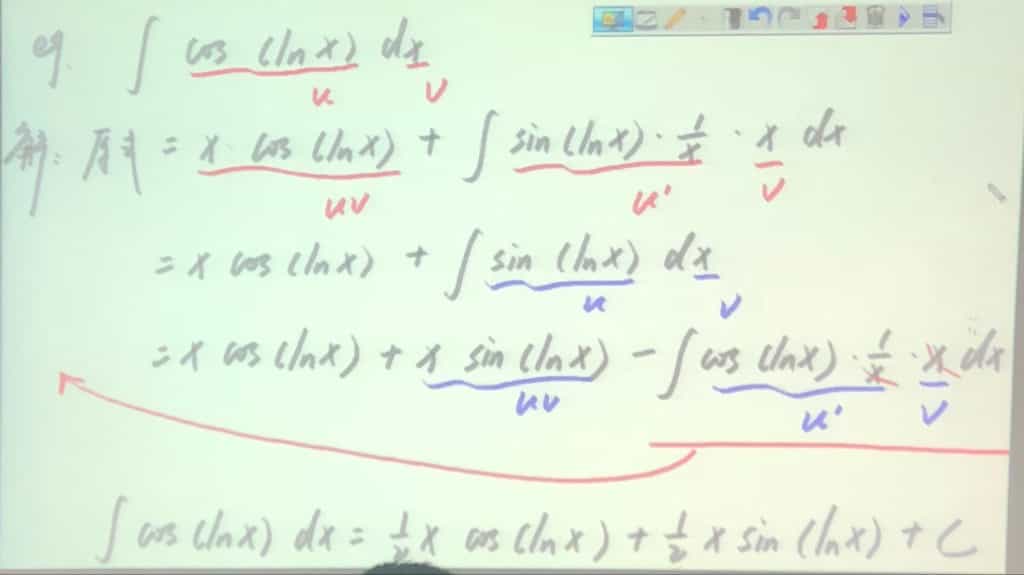 eg. ∫ cos (ln x) dx
u v
解: 原式 = x · cos (ln x) + ∫ sin (ln x) · 1/x · x dx
uv u' v
= x cos (ln x) + ∫ sin (ln x) dx
u v
= x cos (ln x) + x sin (ln x) - ∫ cos (ln x) · 1/x · x dx
uv u' v
∫ cos (ln x) dx = 1/2 x cos (ln x) + 1/2 x sin (ln x) + C